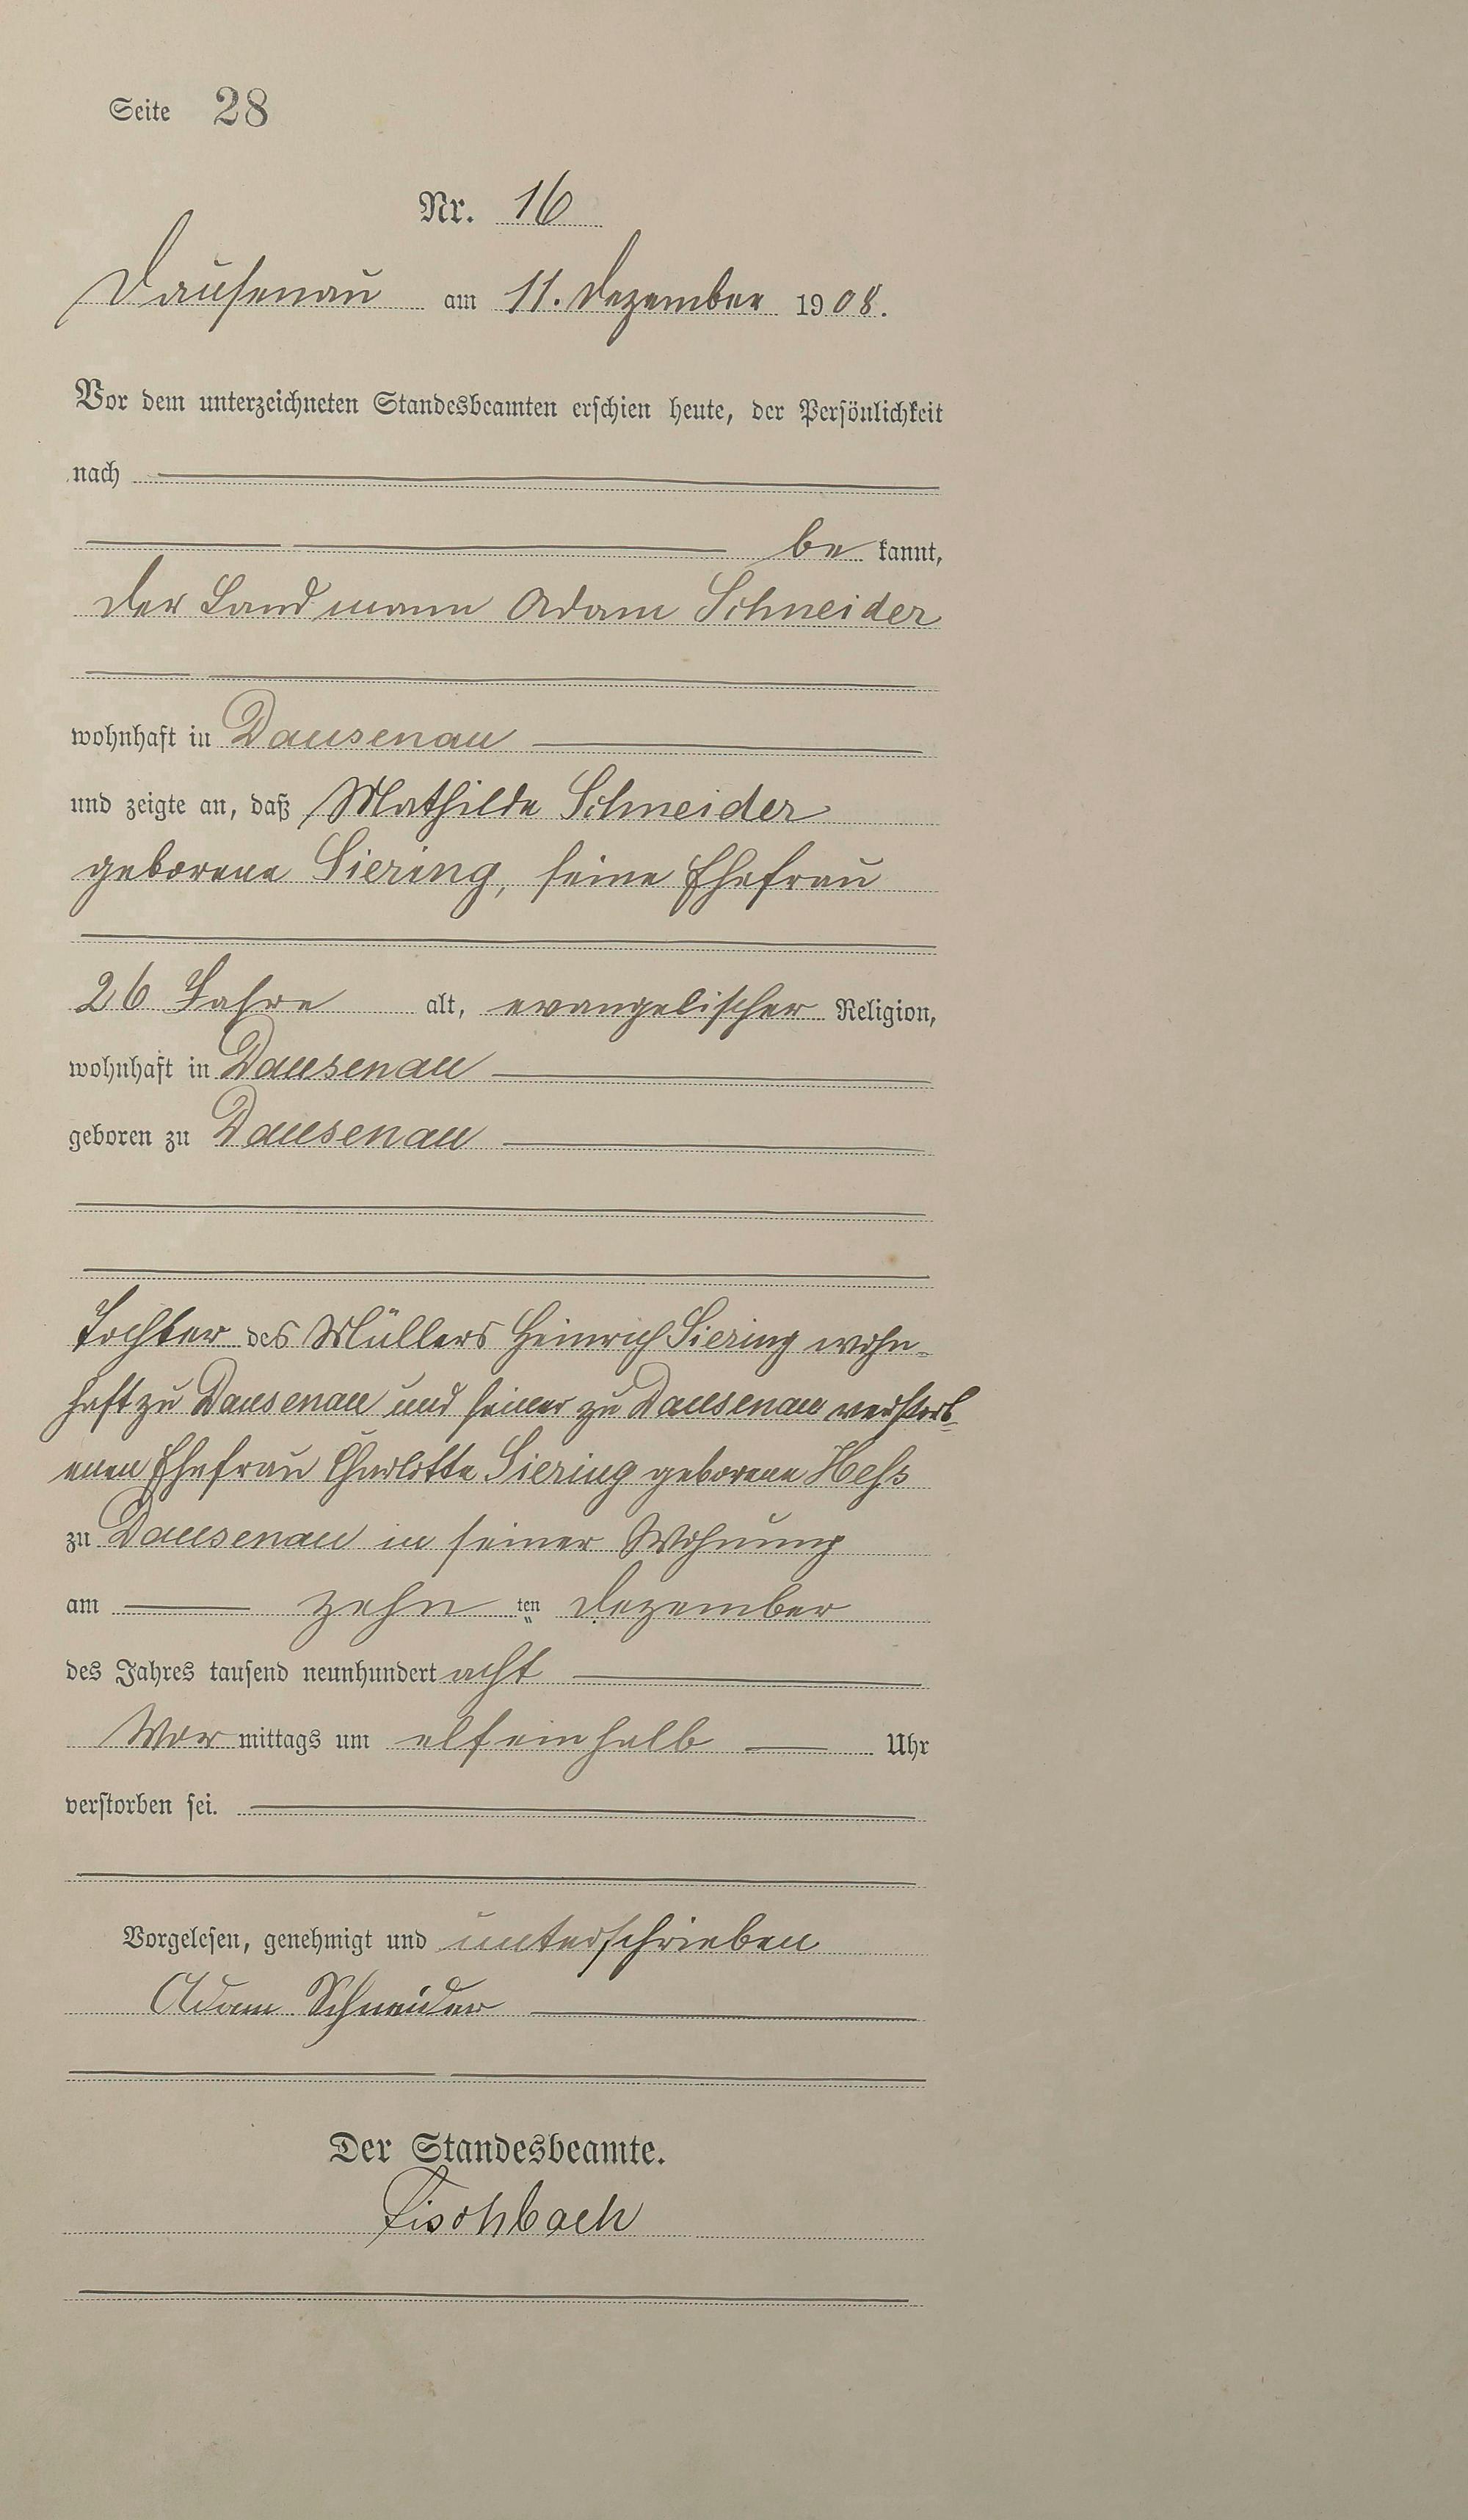 Seite 28
Nr. 16
Dausenau am 11. Dezember 1908.
Vor dem unterzeichneten Standesbeamten erschien heute, der Persönlichkeit
nach
be kannt,
der Landmann Adam Schneider
wohnhaft in Dausenau
und zeigte an, daß Mathilde Schneider
geborene Siering, seine Ehefrau
26 Jahre alt, evangelischer Religion,
wohnhaft in Dausenau
geboren zu Dausenau
Tochter des Müllers Heinrich Siering wohn-
haft zu Dausenau und seiner zu Dausenau verstorb-
enen Ehefrau Charlotte Siering geborene Heß
zu Dausenau in seiner Wohnung
am zehn ten Dezember
des Jahres tausend neunhundert acht
Vor mittags um elfeinhalb Uhr
verstorben sei.
Vorgelesen, genehmigt und unterschrieben
Adam Schneider
Der Standesbeamte.
Fischbach